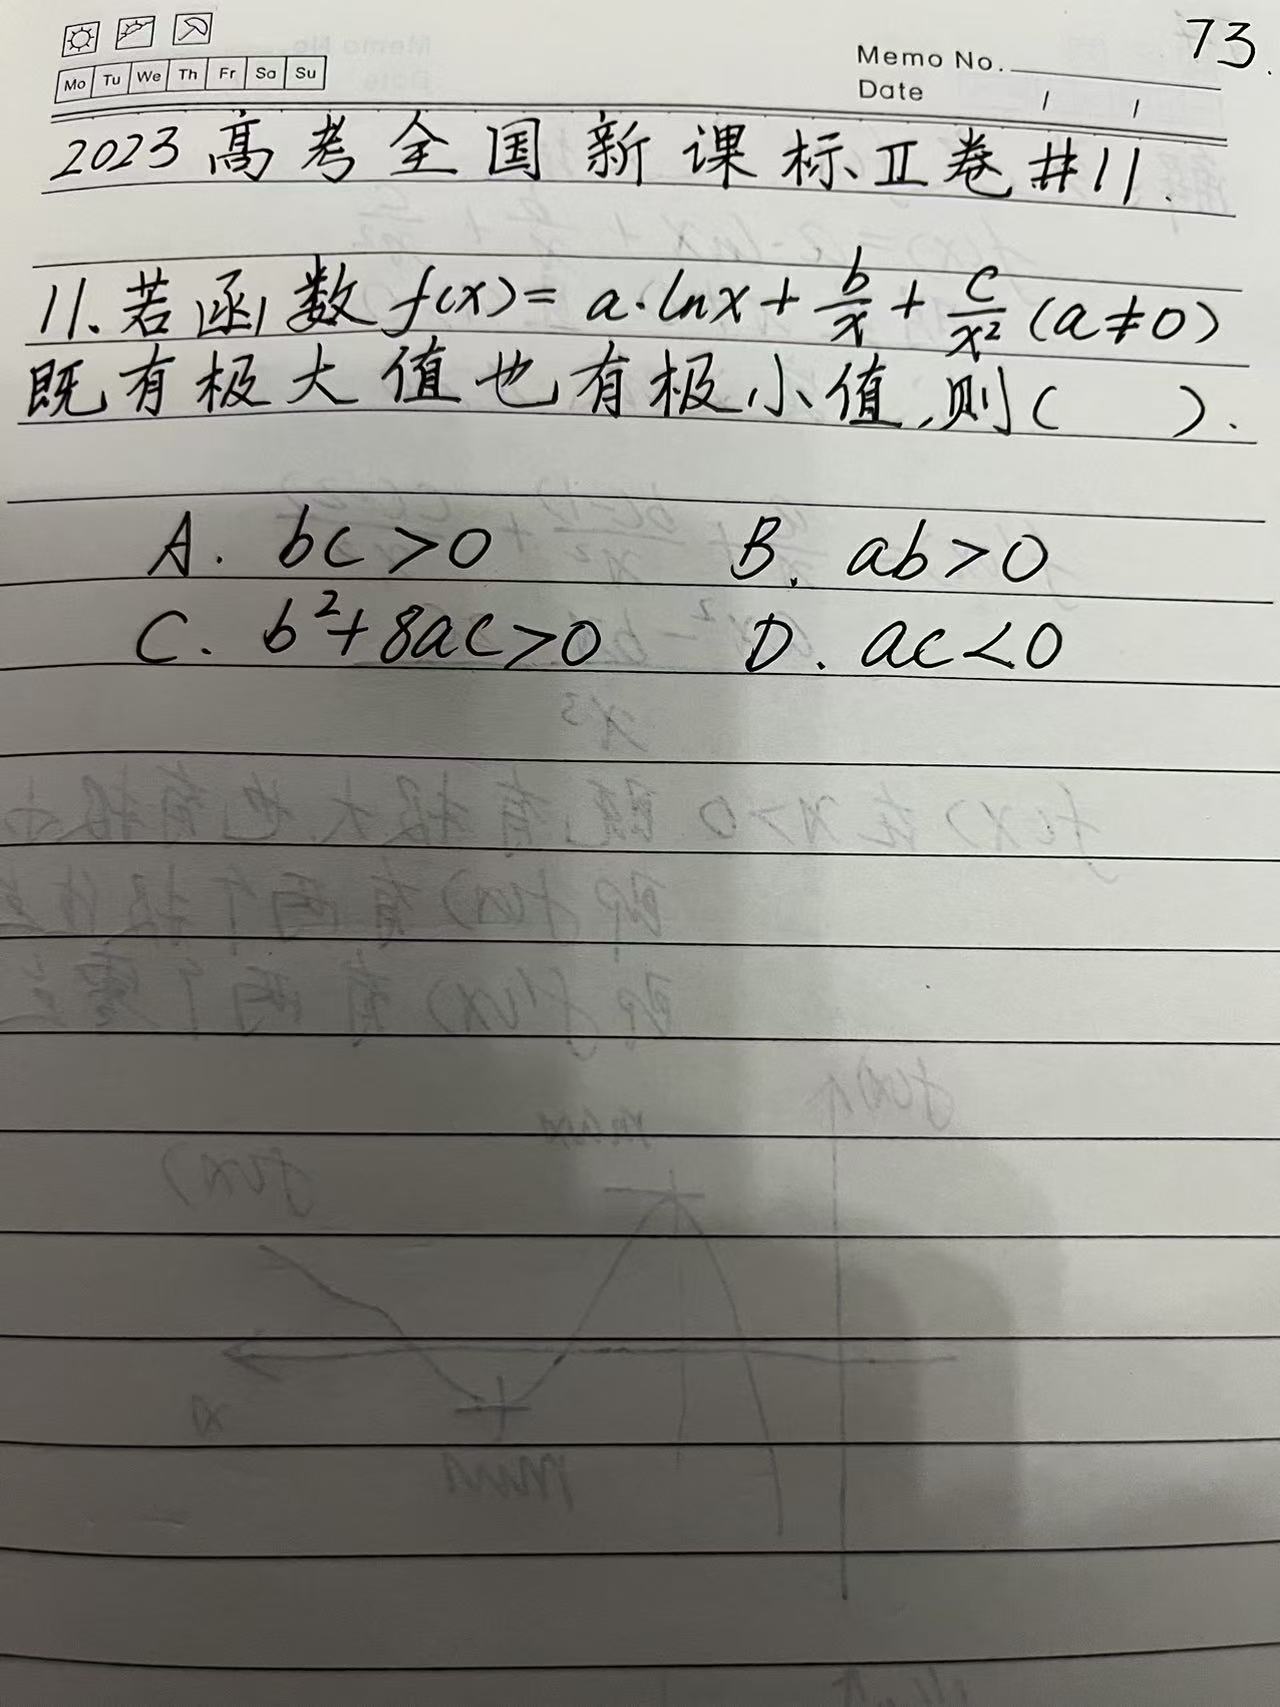 73.
Mo Tu We Th Fr Sa Su
Memo No.
Date / /
2023高考全国新课标Ⅱ卷#11.
11.若函数f(x)=a·lnx+b/x+c/x²(a≠0)
既有极大值也有极小值,则( ).
A. bc>0 B. ab>0
C. b²+8ac>0 D. ac<0